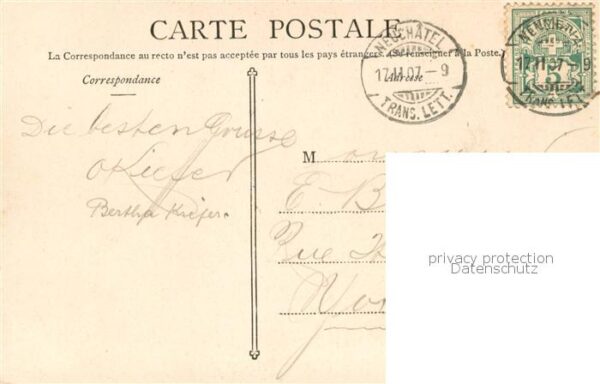 CARTE POSTALE
La Correspondance au recto n'est pas acceptée par tous les pays étrangers (Se renseigner à la Poste.)
NEUCHÂTEL
17.11.07.-9
TRANS. LETT.
NEUCHÂTEL
17.11.07.-9
TRANS. LETT.
5
Correspondance
Adresse
Die besten Grüsse
O Kiefer
Bertha Kiefer.
M
E. B
Rue
privacy protection
Datenschutz